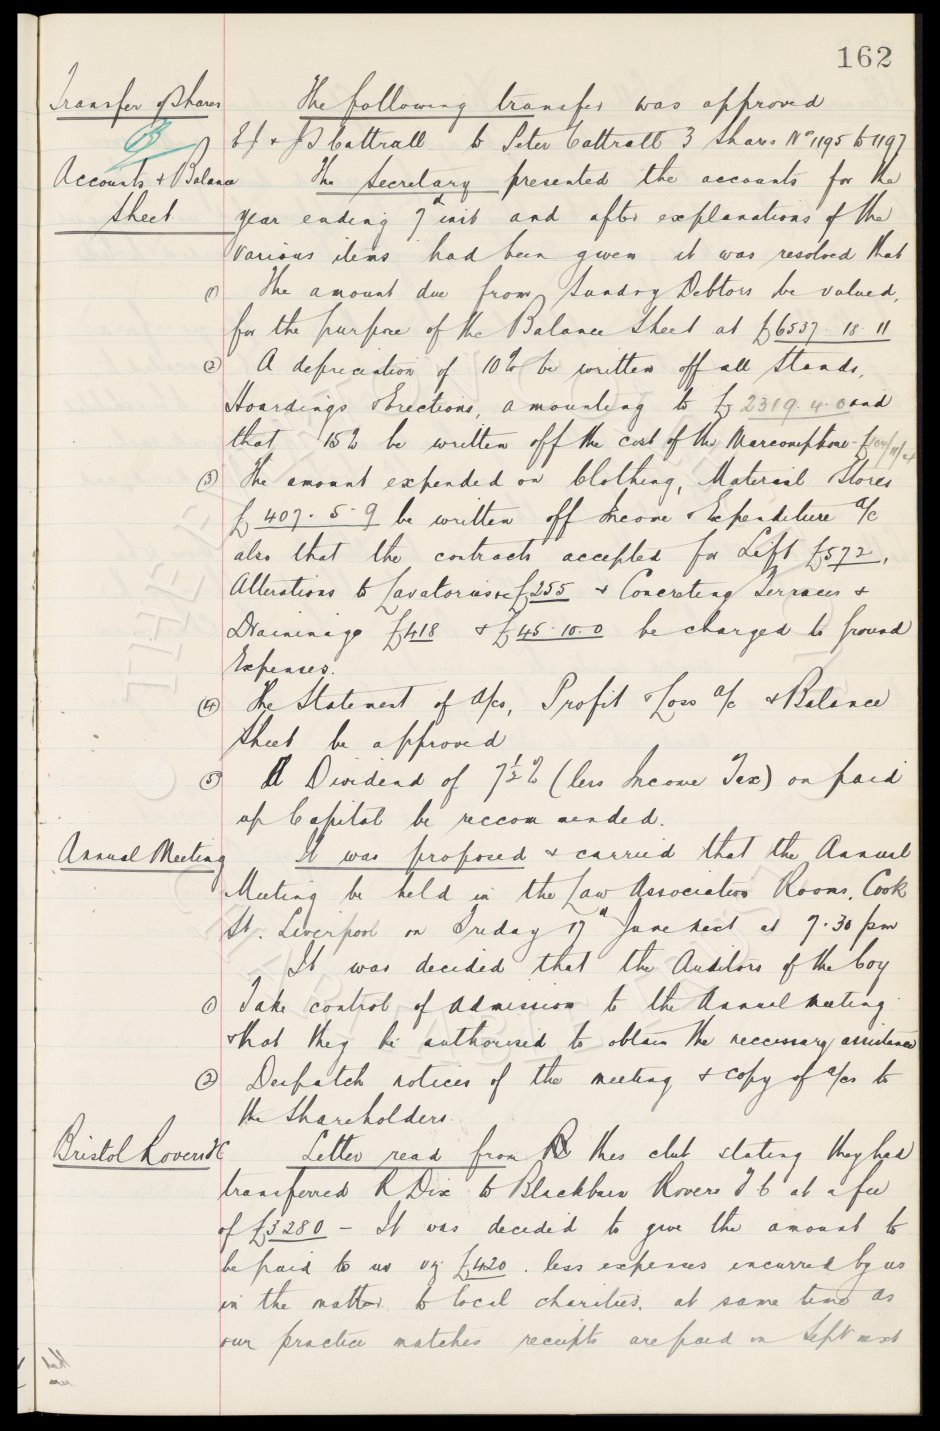 162
Transfer of Shares The following transfer was approved
E J & J S Cattrall to Peter Cattrall 3 Shares Nos 1195 to 1197
Accounts & Balance The Secretary presented the accounts for the
Sheet year ending 7th inst and after explanations of the
various items had been given it was resolved that
(1) The amount due from Sundry Debtors be valued,
for the purpose of the Balance Sheet at £6537. 18. 11
(2) A depreciation of 10% be written off all Stands,
Hoardings & Erections, amounting to £2319. 4. 0 and
that 15% be written off the cost of the Marconiphone
(3) The amount expended on Clothing, Material Stores
£407. 5. 9 be written off Income & Expenditure a/c
also that the contracts accepted for Lift £572,
Alterations to Lavatories £255 & Concreting Terraces &
Draininage £418 & £45. 10. 0 be charged to Ground
Expenses.
(4) The Statement of A/cs, Profit & Loss a/c & Balance
Sheet be approved
(5) A Dividend of 7½% (less Income Tax) on paid
up Capital be reccommended.
Annual Meeting It was proposed & carried that the Annual
Meeting be held in the Law Association Rooms, Cook
St. Liverpool on Friday 17th June next at 7.30 pm
It was decided that the Auditors of the Coy
(1) Take control of admission to the Annual meeting
& that they be authorised to obtain the neccessary assistance
(2) Despatch notices of the meeting & copy of a/cs to
the Shareholders.
Bristol Rovers FC Letter read from this club stating they had
transferred R Dix to Blackburn Rovers F C at a fee
of £3280 – It was decided to give the amount to
be paid to us vz £420. less expenses incurred by us
in the matter. to local charities. at same time as
our practice matches receipts are paid in Sept next